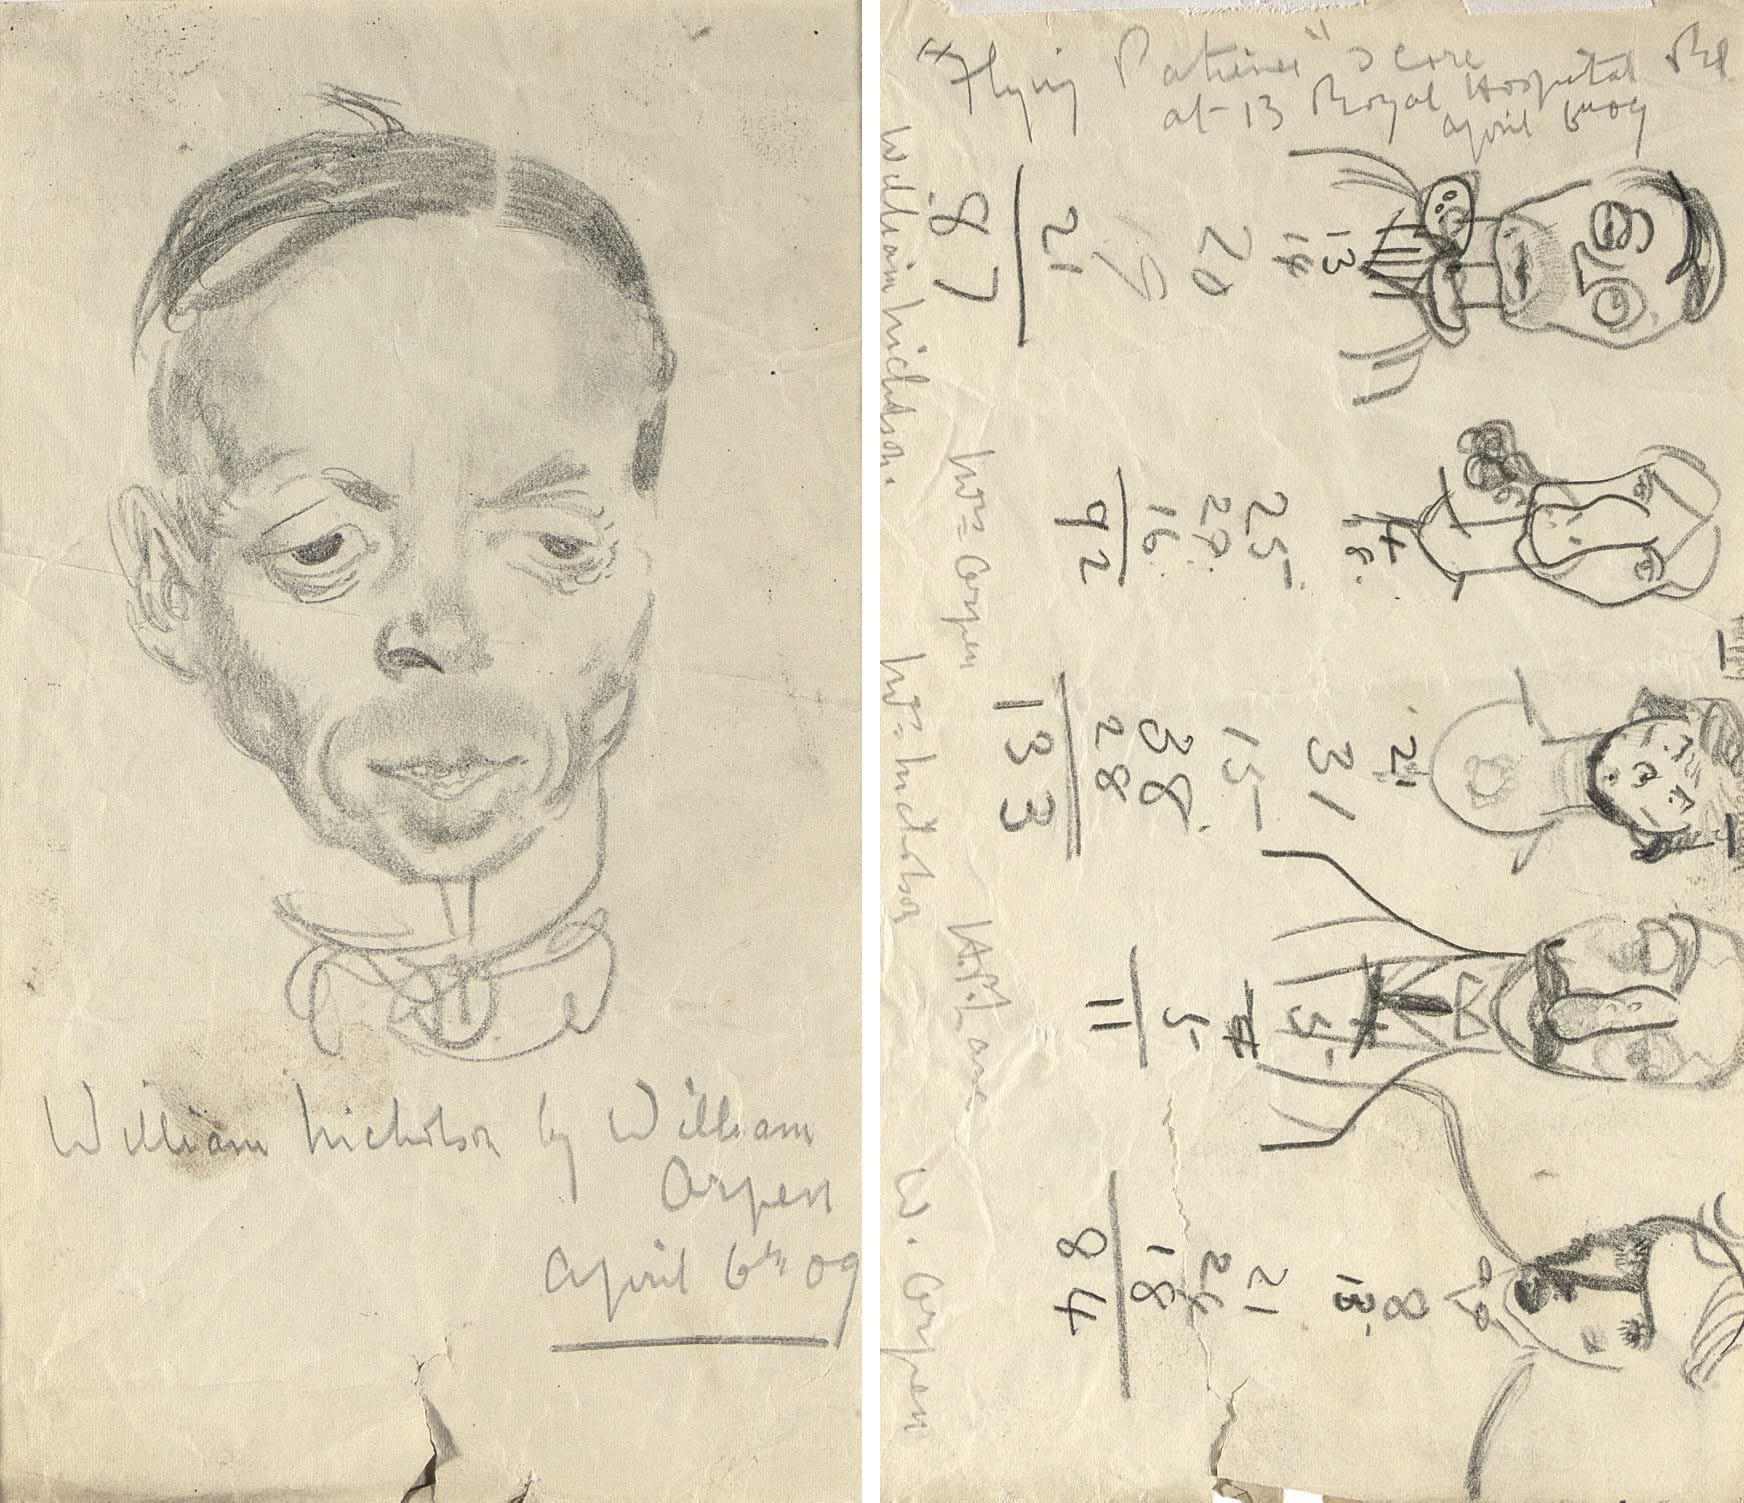 William Nicholson by William
Orpen
April 6th 09
"Flying Patience" score
at 13 Royal Hospital Rd
April 6th 09
13
14
20
21
87
William Nicholson.
48.
25
16
92
Mrs Orpen
21
31
15
38
28
133
Mrs Nicholson
5
11
H. P. Lane
8
13
21
24
18
84
W. Orpen